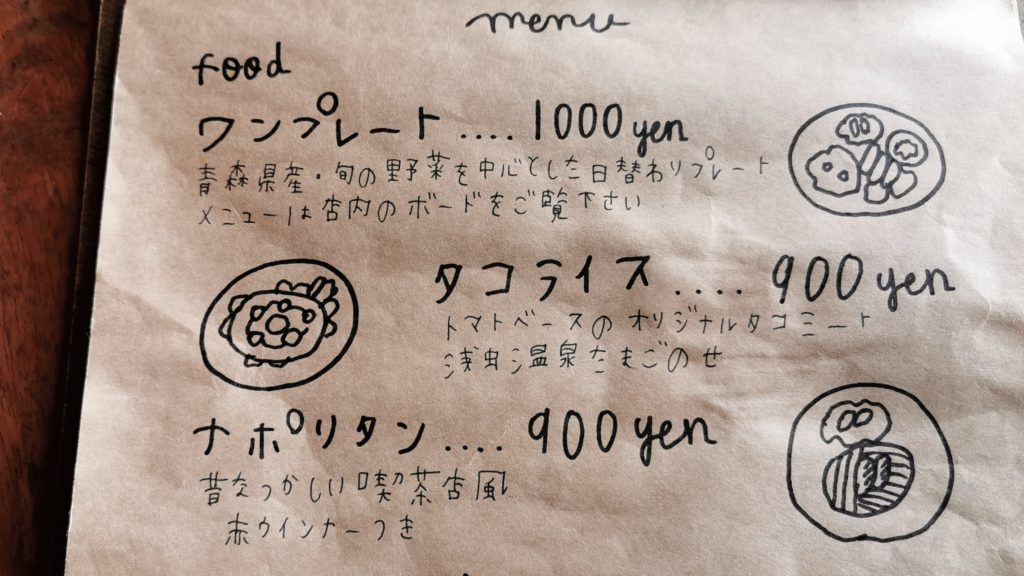 menu
food
ワンプレート .... 1000 yen
青森県産・旬の野菜を中心とした日替わりプレート
メニューは店内のボードをご覧下さい
タコライス .... 900 yen
トマトベースのオリジナルタコミート
浅虫温泉たまごのせ
ナポリタン .... 900 yen
昔なつかしい喫茶店風
赤ウインナーつき